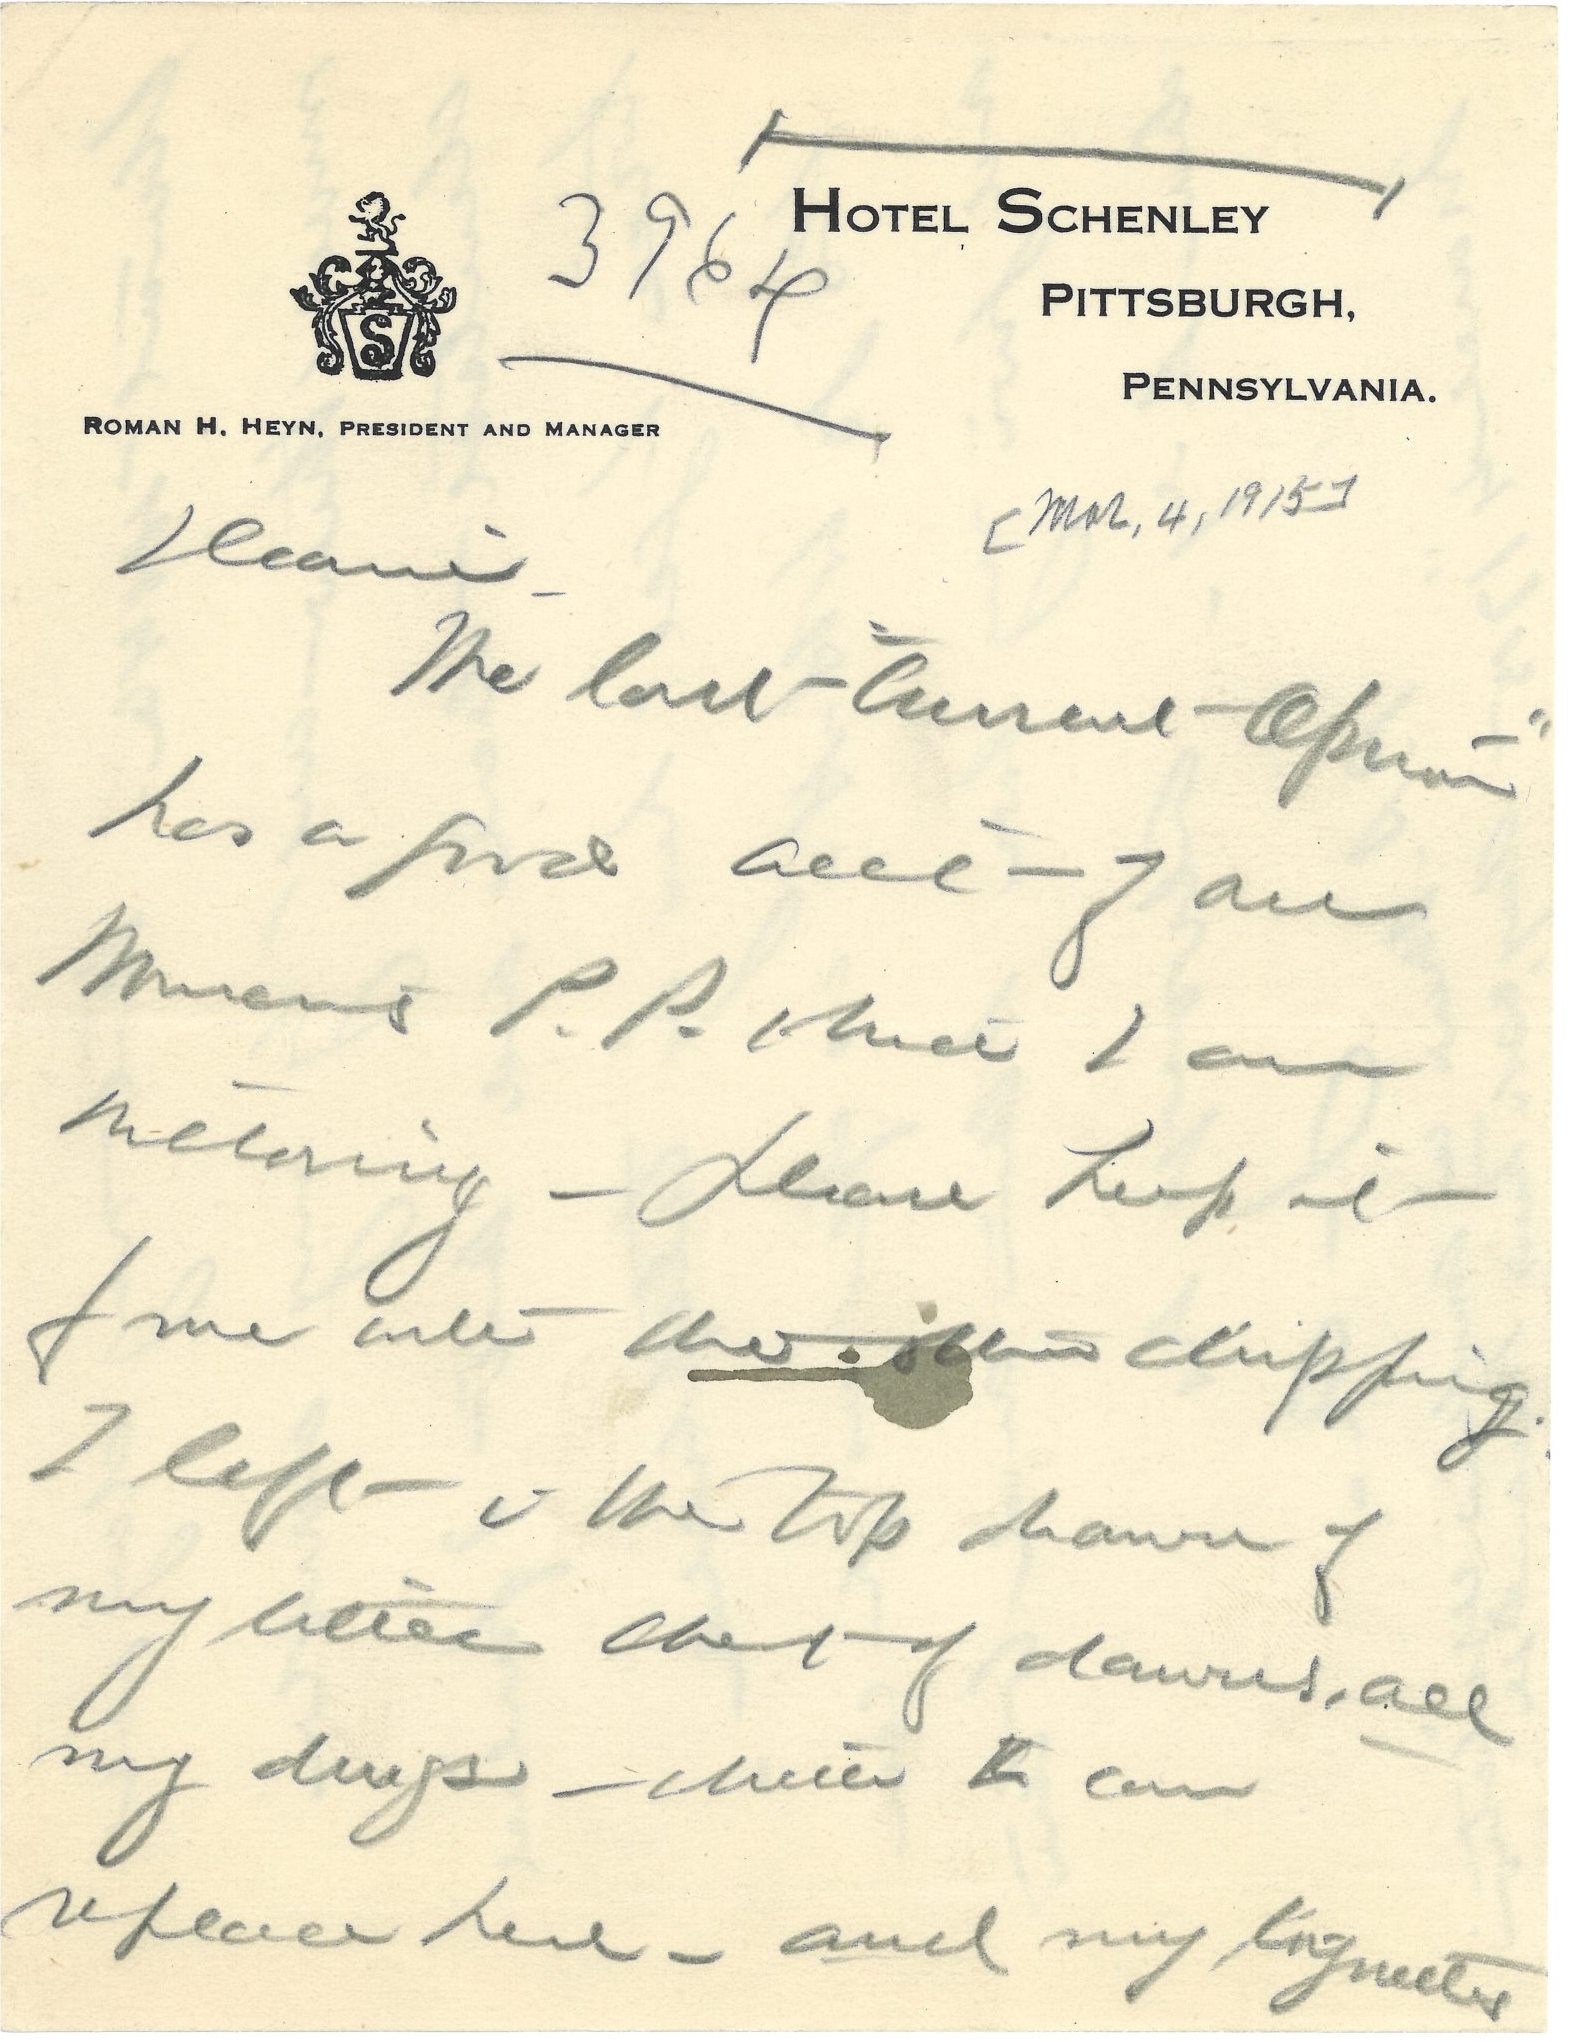 HOTEL SCHENLEY
PITTSBURGH,
PENNSYLVANIA.
3964
S
ROMAN H. HEYN, PRESIDENT AND MANAGER
[Mar, 4, 1915]
Dearie -
The last "Current Opinion"
has a good acct - of an
Woman's P. P. I am
motoring - Please keep it -
for me with the other clipping.
I left - in the top drawer of
my little chest of drawers, all
my drugs - which I can
replace here - and my lorgnettes